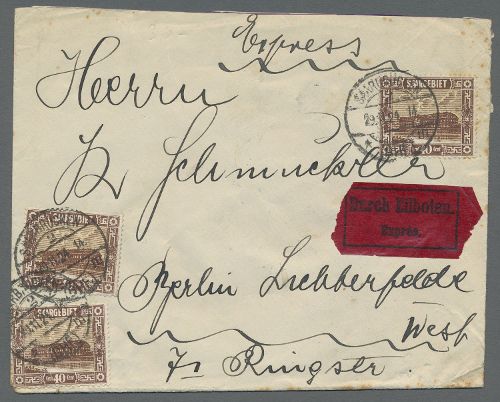 Express
Herrn
K Schmückler
Berlin Lichterfelde
West
7c Ringstr.
SAARGEBIET
Durch Eilboten.
Exprès.
SAARGEBIET
SAARGEBIET
40